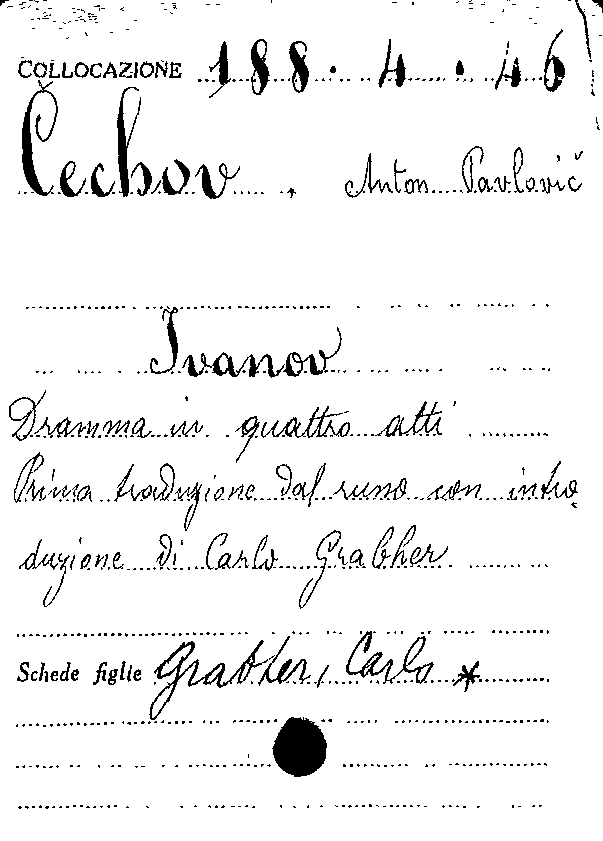 COLLOCAZIONE 188.4.46
Čechov, Anton Pavlovič
Ivanov
Dramma in quattro atti
Prima traduzione dal russo con intro
duzione di Carlo Grabher
Schede figlie Grabher, Carlo *